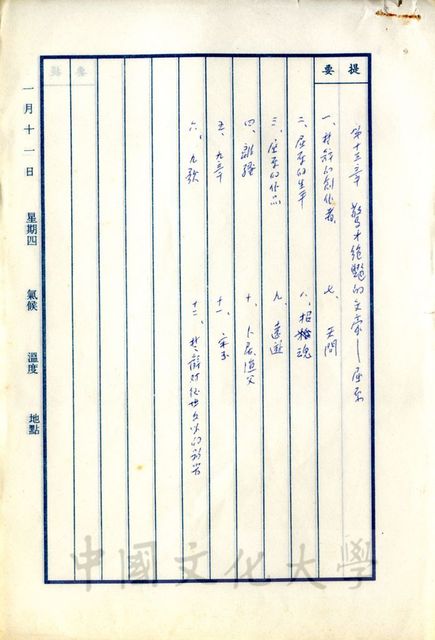 提要
第十三章 驚才絕艷的文豪——屈原
一、楚辭的創作者
七、天問
二、屈原的生平
八、招魂
三、屈原的作品
九、遠遊
四、離騷
十、卜居漁父
五、九章
十一、宋玉
六、九歌
十二、楚辭對後世文學的影響
一月十一日 星期四 氣候 溫度 地點
中國文化大學